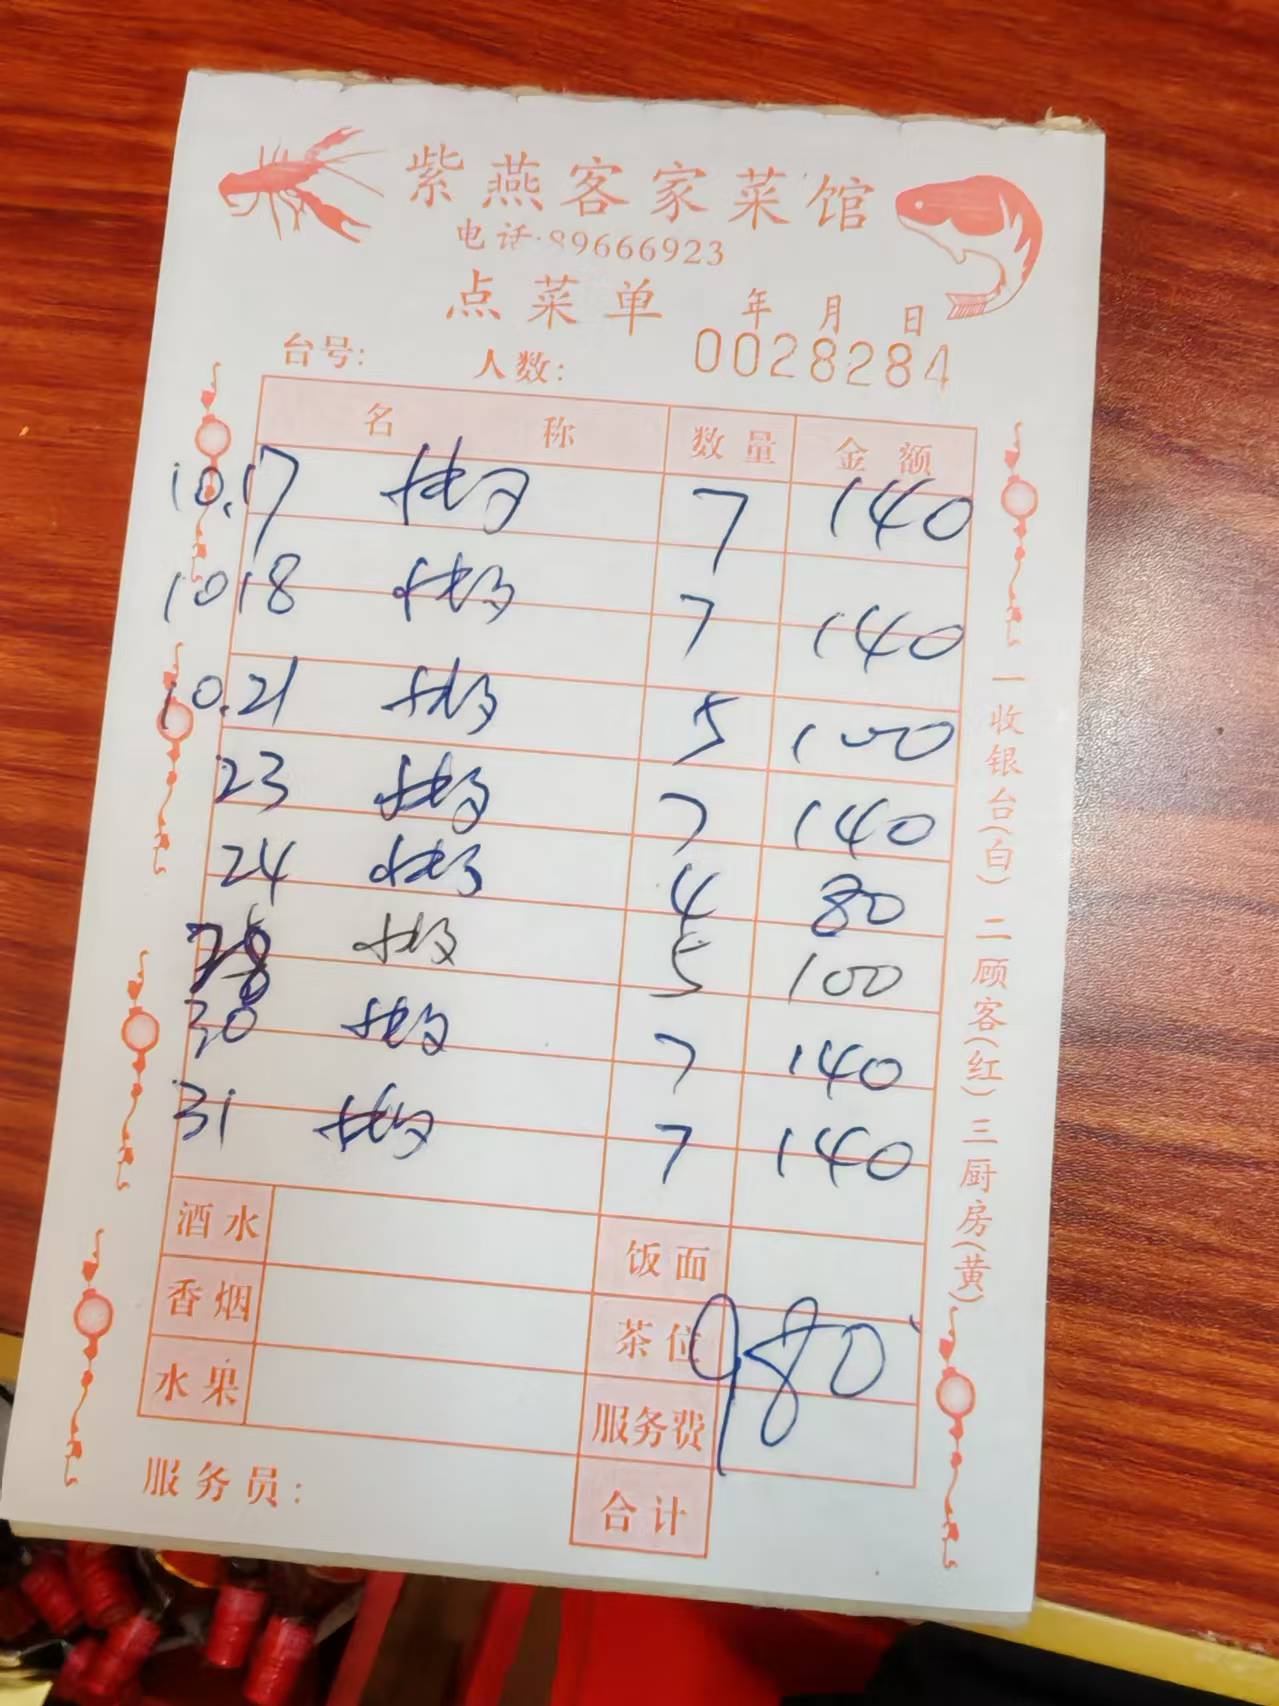 紫燕客家菜馆
电话:89666923
点菜单 年 月 日
台号: 人数: 0028284
名 称 数量 金额
10.17 7 140
10.18 7 140
10.21 5 100
23 7 140
24 4 80
28 5 100
30 7 140
31 7 140
酒水 饭面
香烟 茶位 980
水果 服务费
服务员: 合计
一收银台(白) 二顾客(红) 三厨房(黄)